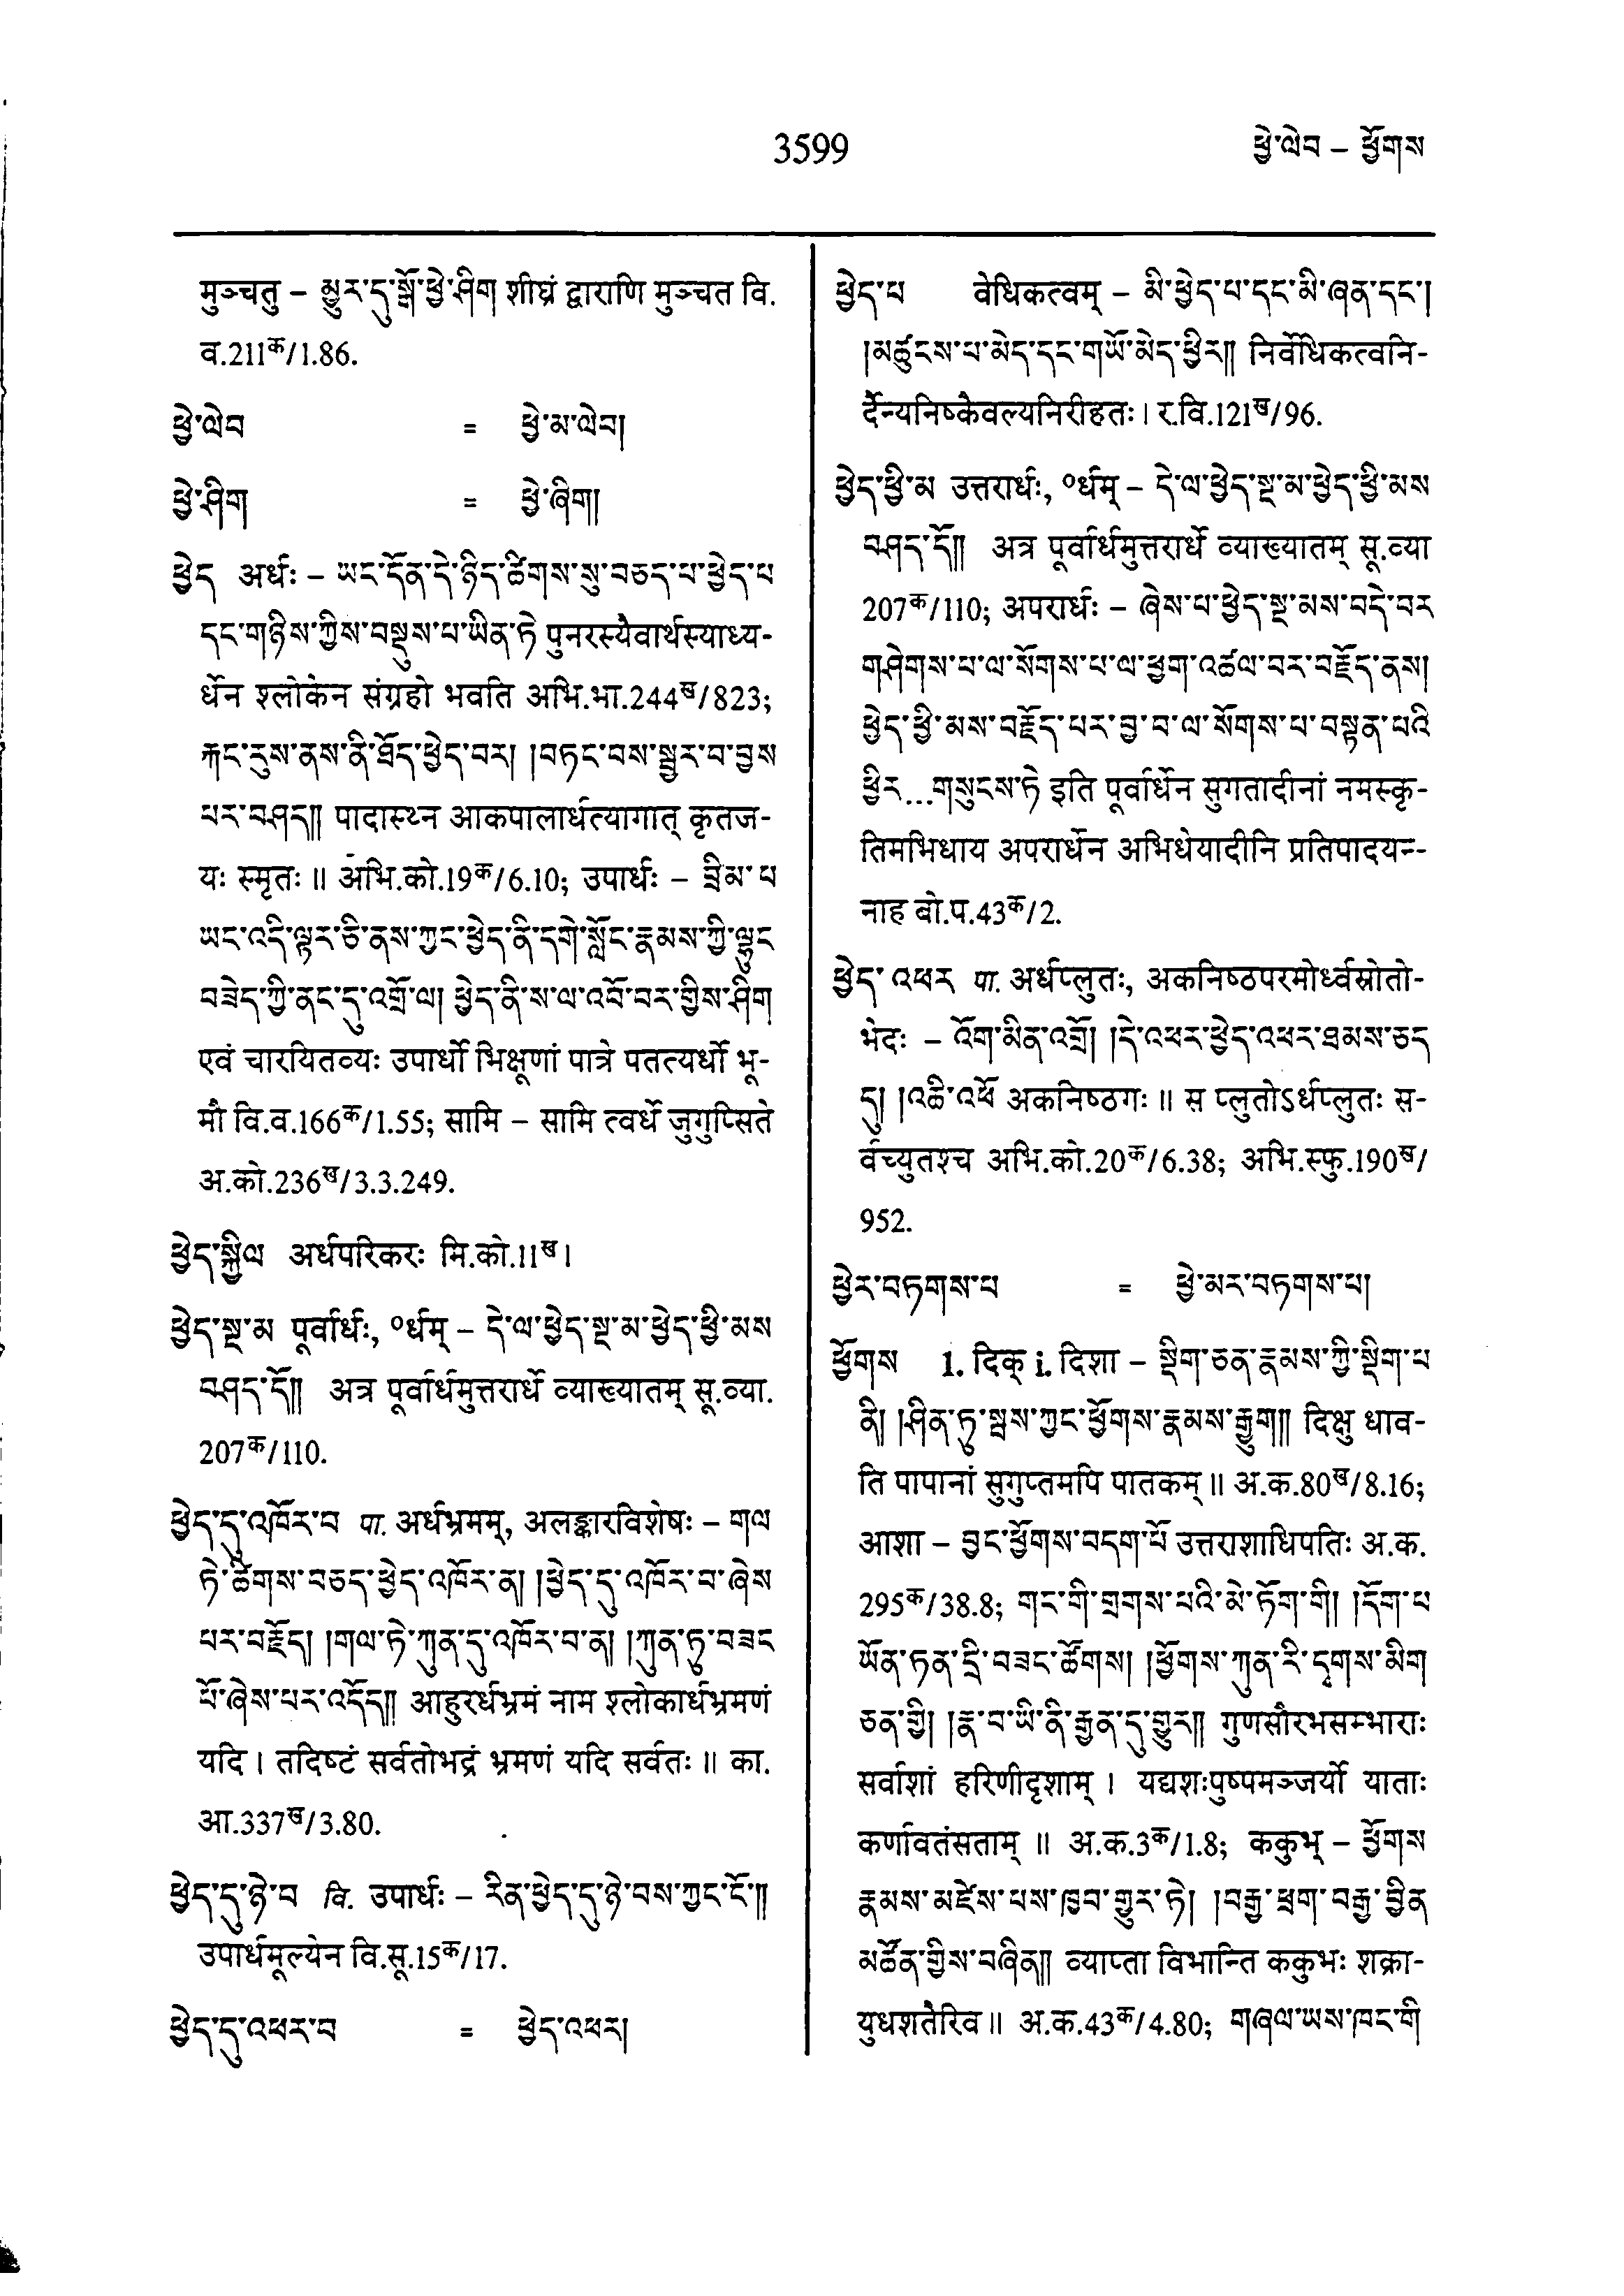 3599
ཕྱེ་ལེབ – ཕྱོགས
मुञ्चतु – མྱུར་དུ་སྒོ་ཕྱེ་ཤིག शीघ्रं द्वाराणि मुञ्चत वि.
व.211क/1.86.
ཕྱེ་ལེབ = ཕྱེ་མ་ལེབ།
ཕྱེ་ཤིག = ཕྱེ་ཞིག།
ཕྱེད अर्धः – ཡང་དོན་དེ་ཉིད་ཚིགས་སུ་བཅད་པ་ཕྱེད་པ
དང་གཉིས་ཀྱིས་བསྡུས་པ་ཡིན་ཏེ पुनरस्यैवार्थस्याध्य-
र्धेन श्लोकेन संग्रहो भवति अभि.भा.244ख/823;
རྐང་རུས་ནས་ནི་ཐོད་ཕྱེད་བར། །བཏང་བས་སྦྱར་བ་བྱས
པར་བཤད།། पादास्थ्न आकपालार्धत्यागात् कृतज-
यः स्मृतः ॥ अभि.को.19क/6.10; उपार्धः – བྲིམ་པ
ཡང་འདི་ལྟར་ཅི་ནས་ཀྱང་ཕྱེད་ནི་དགེ་སློང་རྣམས་ཀྱི་ལྷུང
བཟེད་ཀྱི་ནང་དུ་འགྲོ་ལ། ཕྱེད་ནི་ས་ལ་འབོ་བར་གྱིས་ཤིག
एवं चारयितव्यः उपार्धो भिक्षूणां पात्रे पतत्यर्धो भू-
मौ वि.व.166क/1.55; सामि – सामि त्वर्धे जुगुप्सिते
अ.को.236ख/3.3.249.
ཕྱེད་སྐྱིལ अर्धपरिकरः मि.को.11ख।
ཕྱེད་སྔ་མ पूर्वार्धः, ०र्धम् – དེ་ལ་ཕྱེད་སྔ་མ་ཕྱེད་ཕྱི་མས
བཤད་དོ།། अत्र पूर्वार्धमुत्तरार्धे व्याख्यातम् सू.व्या.
207क/110.
ཕྱེད་དུ་འཁོར་བ पा. अर्धभ्रमम्, अलङ्कारविशेषः – གལ
ཏེ་ཚིགས་བཅད་ཕྱེད་འཁོར་ན། །ཕྱེད་དུ་འཁོར་བ་ཞེས
པར་བརྗོད། །གལ་ཏེ་ཀུན་དུ་འཁོར་བ་ན། །ཀུན་ཏུ་བཟང
པོ་ཞེས་པར་འདོད།། आहुरर्धभ्रमं नाम श्लोकार्धभ्रमणं
यदि । तदिष्टं सर्वतोभद्रं भ्रमणं यदि सर्वतः ॥ का.
आ.337ख/3.80.
ཕྱེད་དུ་ཉེ་བ वि. उपार्धः – རིན་ཕྱེད་དུ་ཉེ་བས་ཀྱང་ངོ་།།
उपार्धमूल्येन वि.सू.15क/17.
ཕྱེད་དུ་འཕར་བ = ཕྱེད་འཕར།
ཕྱེད་པ वेधिकत्वम् – མི་ཕྱེད་པ་དང་མི་ཞན་དང་།
།མཚུངས་པ་མེད་དང་གཡོ་མེད་ཕྱིར།། निर्वेधिकत्वनि-
र्दैन्यनिष्कैवल्यनिरीहतः । र.वि.121ख/96.
ཕྱེད་ཕྱི་མ उत्तरार्धः, ०र्धम् – དེ་ལ་ཕྱེད་སྔ་མ་ཕྱེད་ཕྱི་མས
བཤད་དོ།། अत्र पूर्वार्धमुत्तरार्धे व्याख्यातम् सू.व्या
207क/110; अपरार्धः – ཞེས་པ་ཕྱེད་སྔ་མས་བདེ་བར
གཤེགས་པ་ལ་སོགས་པ་ལ་ཕྱག་འཚལ་བར་བརྗོད་ནས།
ཕྱེད་ཕྱི་མས་བརྗོད་པར་བྱ་བ་ལ་སོགས་པ་བསྟན་པའི
ཕྱིར...གསུངས་ཏེ इति पूर्वार्धेन सुगतादीनां नमस्कृ-
तिमभिधाय अपरार्धेन अभिधेयादीनि प्रतिपादयन्-
नाह बो.प.43क/2.
ཕྱེད་འཕར पा. अर्धप्लुतः, अकनिष्ठपरमोर्ध्वस्रोतो-
भेदः – འོག་མིན་འགྲོ། །དེ་འཕར་ཕྱེད་འཕར་ཐམས་ཅད
དུ། །འཆི་འཕོ अकनिष्ठगः ॥ स प्लुतोऽर्धप्लुतः स-
र्वच्युतश्च अभि.को.20क/6.38; अभि.स्फु.190ख/
952.
ཕྱེར་བཏགས་པ = ཕྱེ་མར་བཏགས་པ།
ཕྱོགས 1. दिक् i. दिशा – སྡིག་ཅན་རྣམས་ཀྱི་སྡིག་པ
ནི། །ཤིན་ཏུ་སྦས་ཀྱང་ཕྱོགས་རྣམས་རྒྱུག།། दिक्षु धाव-
ति पापानां सुगुप्तमपि पातकम् ॥ अ.क.80ख/8.16;
आशा – བྱང་ཕྱོགས་བདག་པོ उत्तराशाधिपतिः अ.क.
295क/38.8; གང་གི་གྲགས་པའི་མེ་ཏོག་གི། །དོག་པ
ཡོན་ཏན་དྲི་བཟང་ཚོགས། །ཕྱོགས་ཀུན་རི་དྭགས་མིག
ཅན་གྱི། །རྣ་བ་ཡི་ནི་རྒྱན་དུ་གྱུར།། गुणसौरभसम्भाराः
सर्वाशां हरिणीदृशाम् । यद्यशःपुष्पमञ्जर्यो याताः
कर्णावतंसताम् ॥ अ.क.3क/1.8; ककुभ् – ཕྱོགས
རྣམས་མཛེས་པས་ཁྱབ་གྱུར་ཏེ། །བརྒྱ་ཕྲག་བརྒྱ་བྱིན
མཚོན་གྱིས་བཞིན།། व्याप्ता विभान्ति ककुभः शक्रा-
युधशतैरिव ॥ अ.क.43क/4.80; གཞལ་ཡས་ཁང་གི